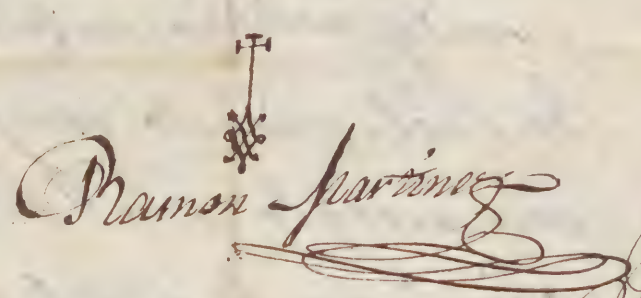 Ramon Martinez